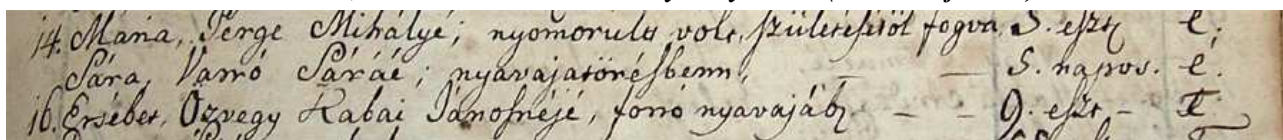 14. Mária, Perge Mihályé; nyomorult volt, születésitöl fogva, 3. eszt. é.
Sára, Varró Sáráé; nyavajatörésbenn, — — 5. napos. é.
16. Ersébet, Özvegy Kabai Jánosnéjé, forró nyavajáb. — — 9. eszt —